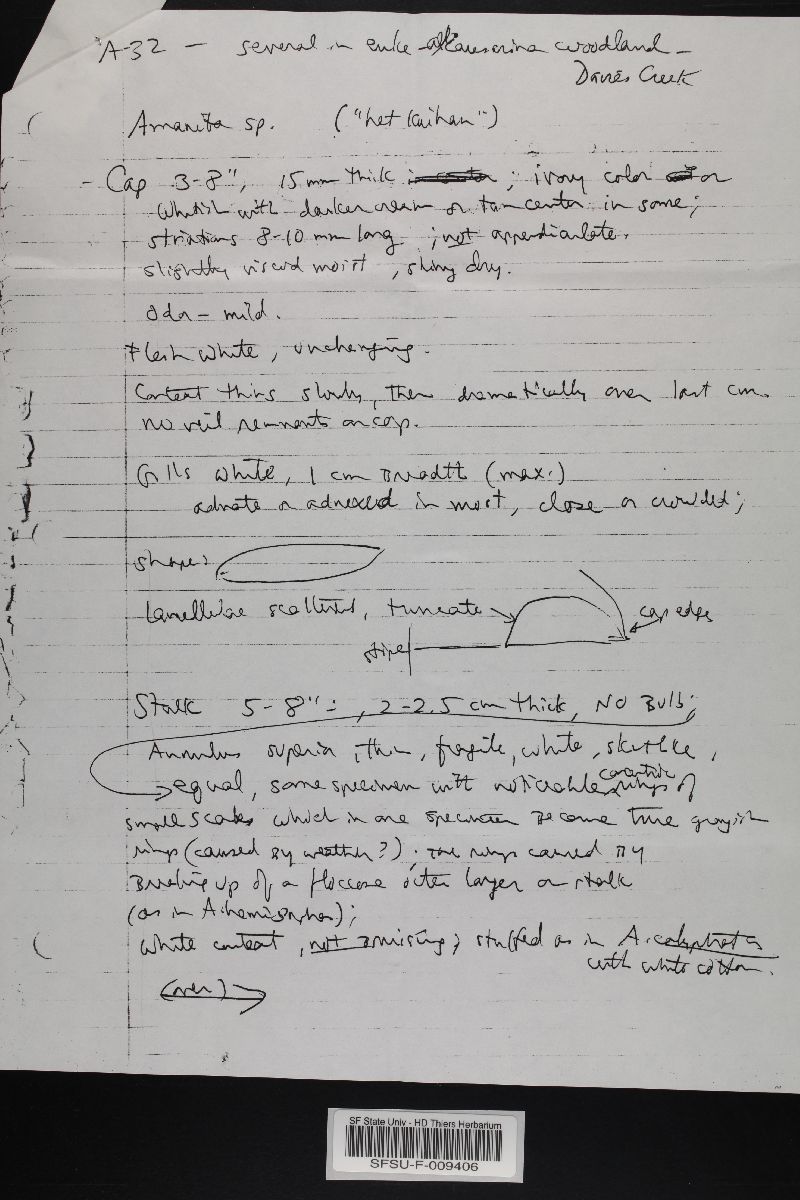 A-32 — several in euke - Casuarina woodland —
Davies Creek
Amanita sp. ("het kaihan")
- Cap 3-8", 15 mm thick ; ivory color or
whitish with darker cream or tan center in some;
striations 8-10 mm long ; not appendiculate.
slightly viscid moist, shiny dry.
Odor - mild.
Flesh white, unchanging.
Context thins slowly, then dramatically over last cm.
no veil remnants on cap.
Gills white, 1 cm Breadth (max.)
adnate or adnexed in most, close or crowded;
shape:
Lamellulae scattered, truncate
cap edge
stipe
Stalk 5-8" ±, 2-2.5 cm thick, NO Bulb;
Annulus superior, thin, fragile, white, skirtlike,
equal, some specimen with noticeable concentric rings of
small scales which in one specimen Become true grayish
rings (caused By weather?). The rings caused By
Breaking up of a floccose outer layer on stalk
(as in A. hemisphor);
white context, not Bruising; stuffed as in A. calyptrata
with white cotton.
(over)
SF State Univ - HD Thiers Herbarium
SFSU-F-009406